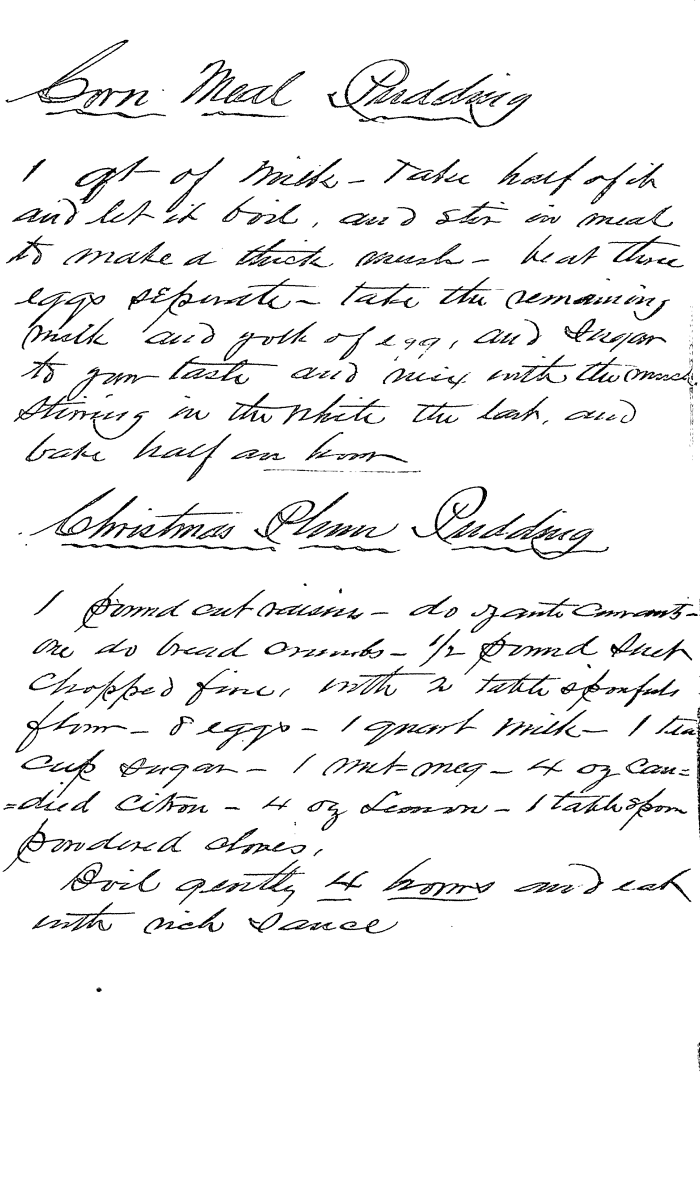 Corn Meal Pudding
1 qt of Milk - Take half of it
and let it boil, and stir in meal
to make a thick mush - beat three
eggs seperate - take the remaining
milk and yolk of egg, and Sugar
to your taste and mix with the mush
Stirring in the white the last, and
bake half an hour
Christmas Plum Pudding
1 pound cut raisins - do zante currants -
one do bread crumbs - 1/2 pound Suet
Chopped fine, with 2 table sponfuls
flour - 8 eggs - 1 quart Milk - 1 tea
cup sugar - 1 nut=meg - 4 oz Can=
=died Citron - 4 oz Lemon - 1 tablespoon
powdered cloves,
Boil gently 4 hours and eat
with rich Sauce